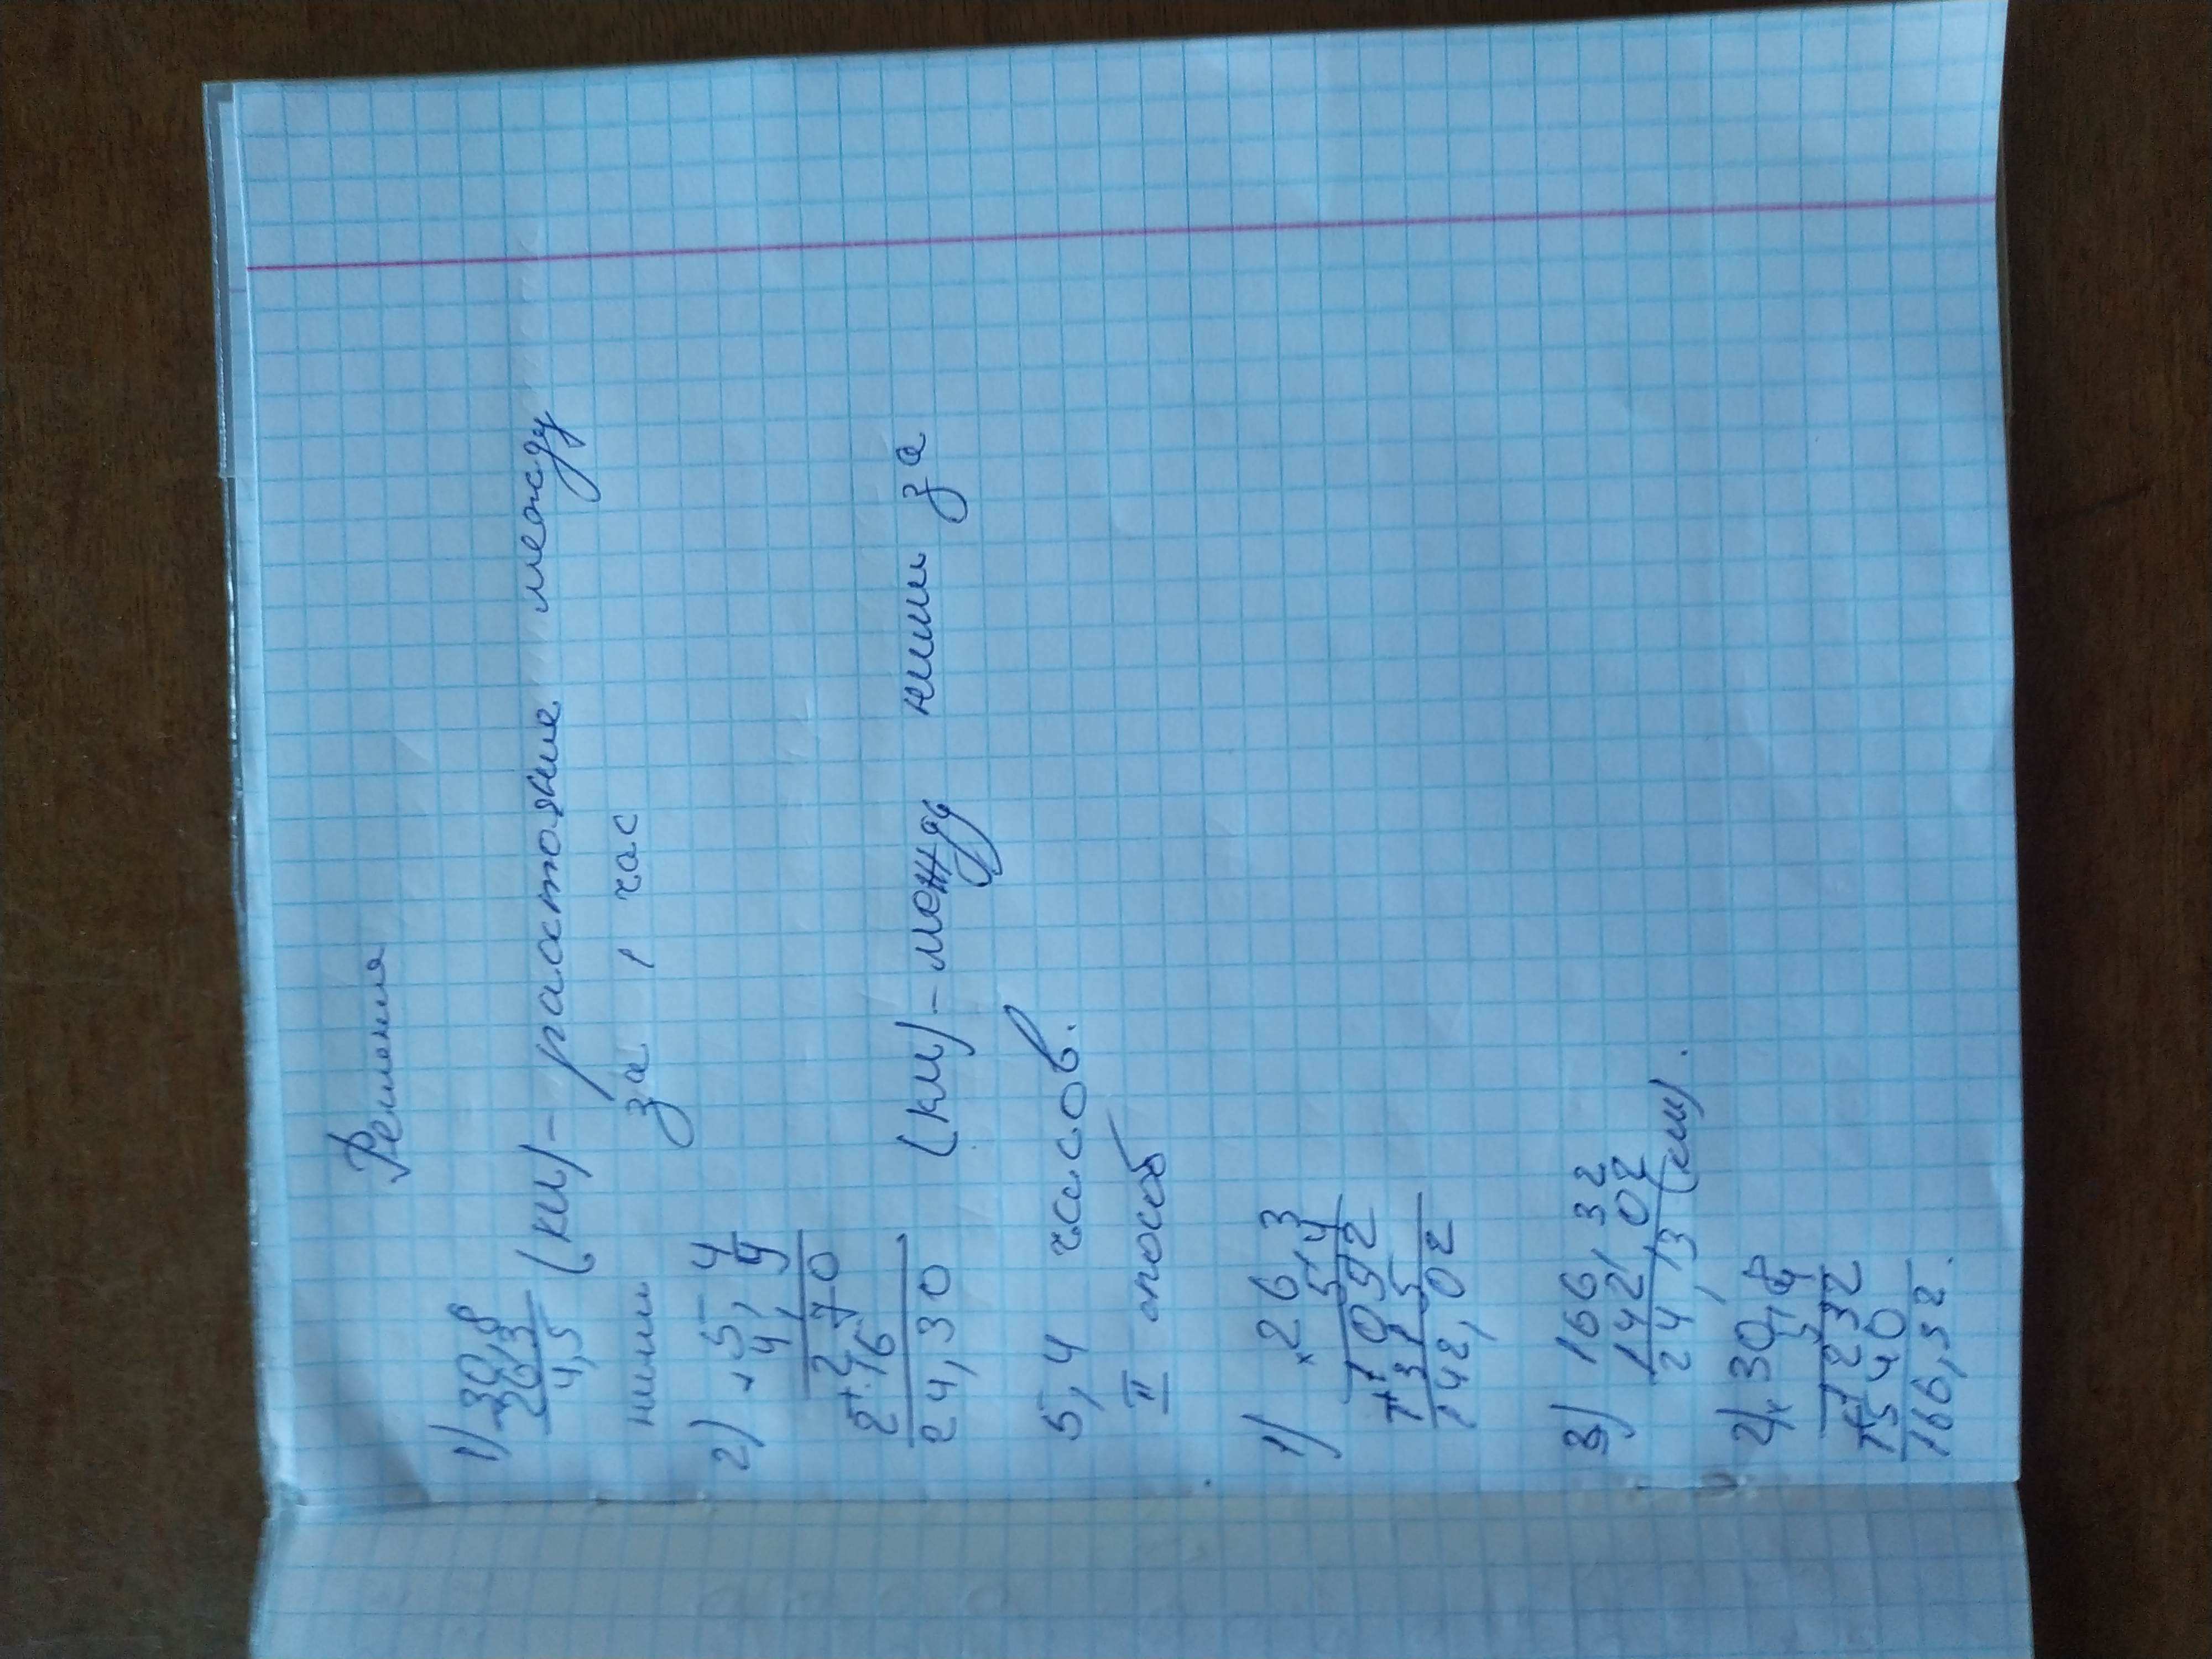 Решения
1) 30,8
26,3
4,5 (км) – расстояние между
ними за 1 час
2) × 5,4
4,5
270
+
216
24,30 (км) – между ними за
5,4 часов.
II способ
1) × 26,3
5,4
1092
+
1315
142,02
3) 166,32
142,02
24,13 (км).
2) × 30,8
5,4
1232
+
1540
166,32.